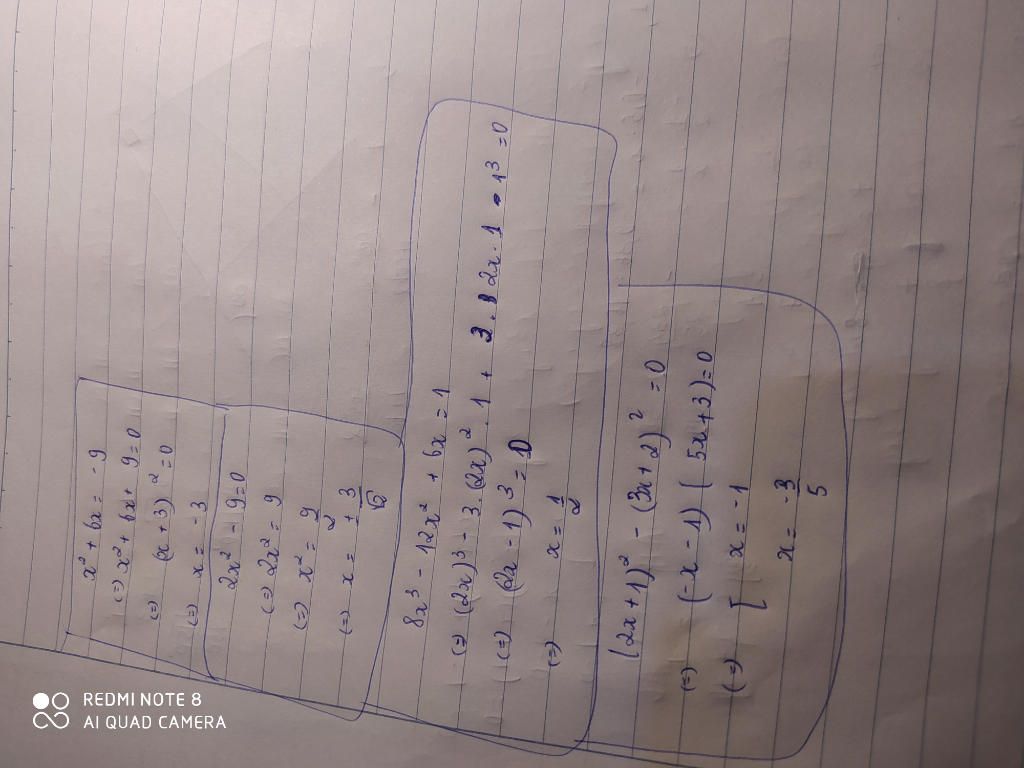 x² + 6x = -9
(=) x² + 6x + 9 = 0
(=) (x + 3)² = 0
(=) x = -3
2x² - 9 = 0
(=) 2x² = 9
(=) x² = 9/2
(=) x = ± 3/√2
8x³ - 12x² + 6x = 1
(=) (2x)³ - 3.(2x)².1 + 3.2x.1 - 1³ = 0
(=) (2x - 1)³ = 0
(=) x = 1/2
(2x + 1)² - (3x + 2)² = 0
(=) (-x - 1)(5x + 3) = 0
(=) [ x = -1
x = -3/5
REDMI NOTE 8
AI QUAD CAMERA